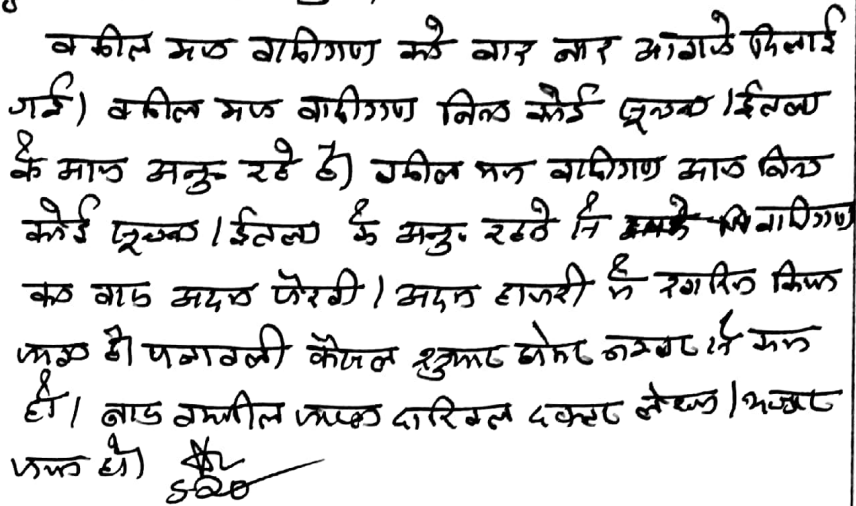 वकील मय वादीगण को बार बार आवाजें दिलाई
गई। वकील मय वादीगण बिना कोई सूचना / ईतला
के आज अनु. रहे है। वकील मय वादीगण आज बिना
कोई सूचना / ईतला के अनु. रहने से वादीगण
का वाद अदम पैरवी / अदम हाजरी में खारिज किया
जाता है। पत्रावली फैसल शुमार होकर नम्बर से कम
हो। बाद तकमील दाखिल दफ्तर लेख्य /
जावे।